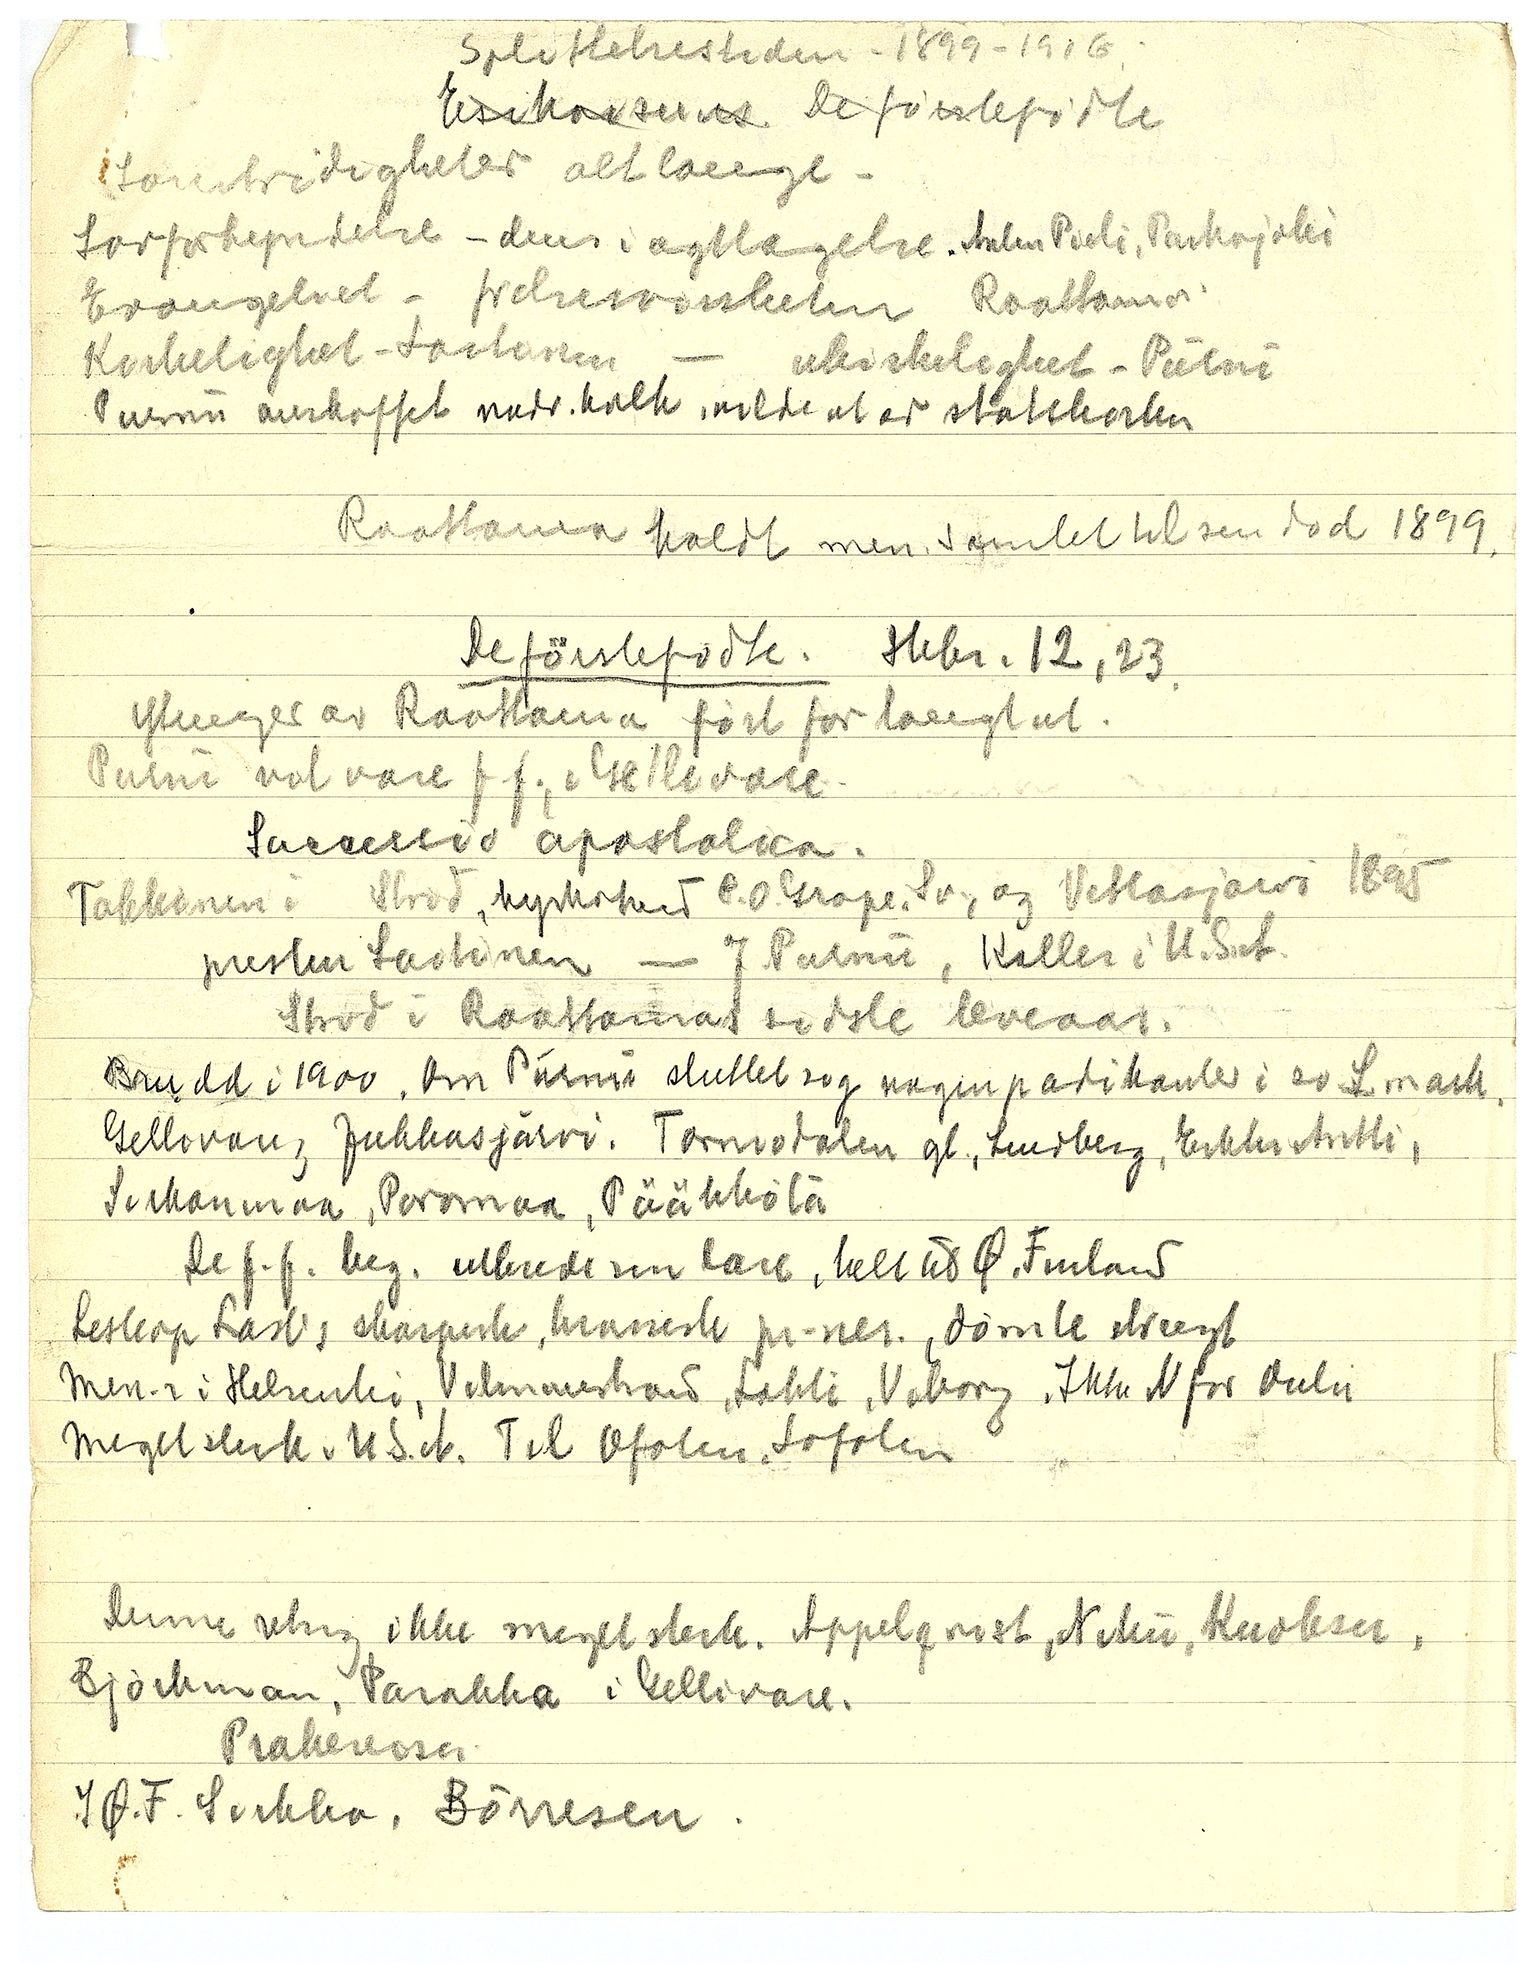 Splittelsestiden - 1899-1916.
Esikoisuus De förstefödte
Lærestridigheter alt længe -
Lovforkyndelse - dens iagttagelse. Anten Pieti, Parkajoki
Evangeliet - frelsesvissheten Raattama
Kirkelighet - Laitinen — ukirkelighet - Purnu
Purnu avskaffet nadv. kalk, vilde ut av statskirken
Raattama holdt men. samlet til sin död 1899.
De förstefödte. Hebr. 12,23.
Ytringer av Raattama fört for langt ut.
Purnu vol være f. f., i Gellivare.
Successio apostolica.
Takkinen i Strid, P.O. Grape, Sv., og Vettasjärvi 1895
presten Laitinen — J Purnu, Koller i U.S.A.
Strid i Raattamas sidste leveaar.
Brudd i 1900. Om Purnu sluttet sig nogen predikanter i sv. L.mark.
Gellivare, Jukkasjärvi. Tornedalen gl., Lindberg, Erkki Antti,
Siikavuoma, Poromaa, Pääkkölä
De f.f. beg. utbrede sin lære, helt til Ø. Finland
Lestvop Læst's skarpeste, krasseste pr-ner., dömte strengt
Men-r i Helsinki, Vilmanstrand, Lahti, Viborg. Ikke N for Oulu
Meget sterk i U.S.A. Til Ofoten, Lofoten
Denne retning ikke meget sterk. Appelqvist, Niku, Knoksen,
Björkman, Parakka i Gellivare.
I Ø.F. Sirkka, Börresen.